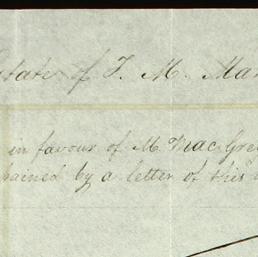 state of T. M. Mar
in favour of M. MacGre
pained by a letter of this